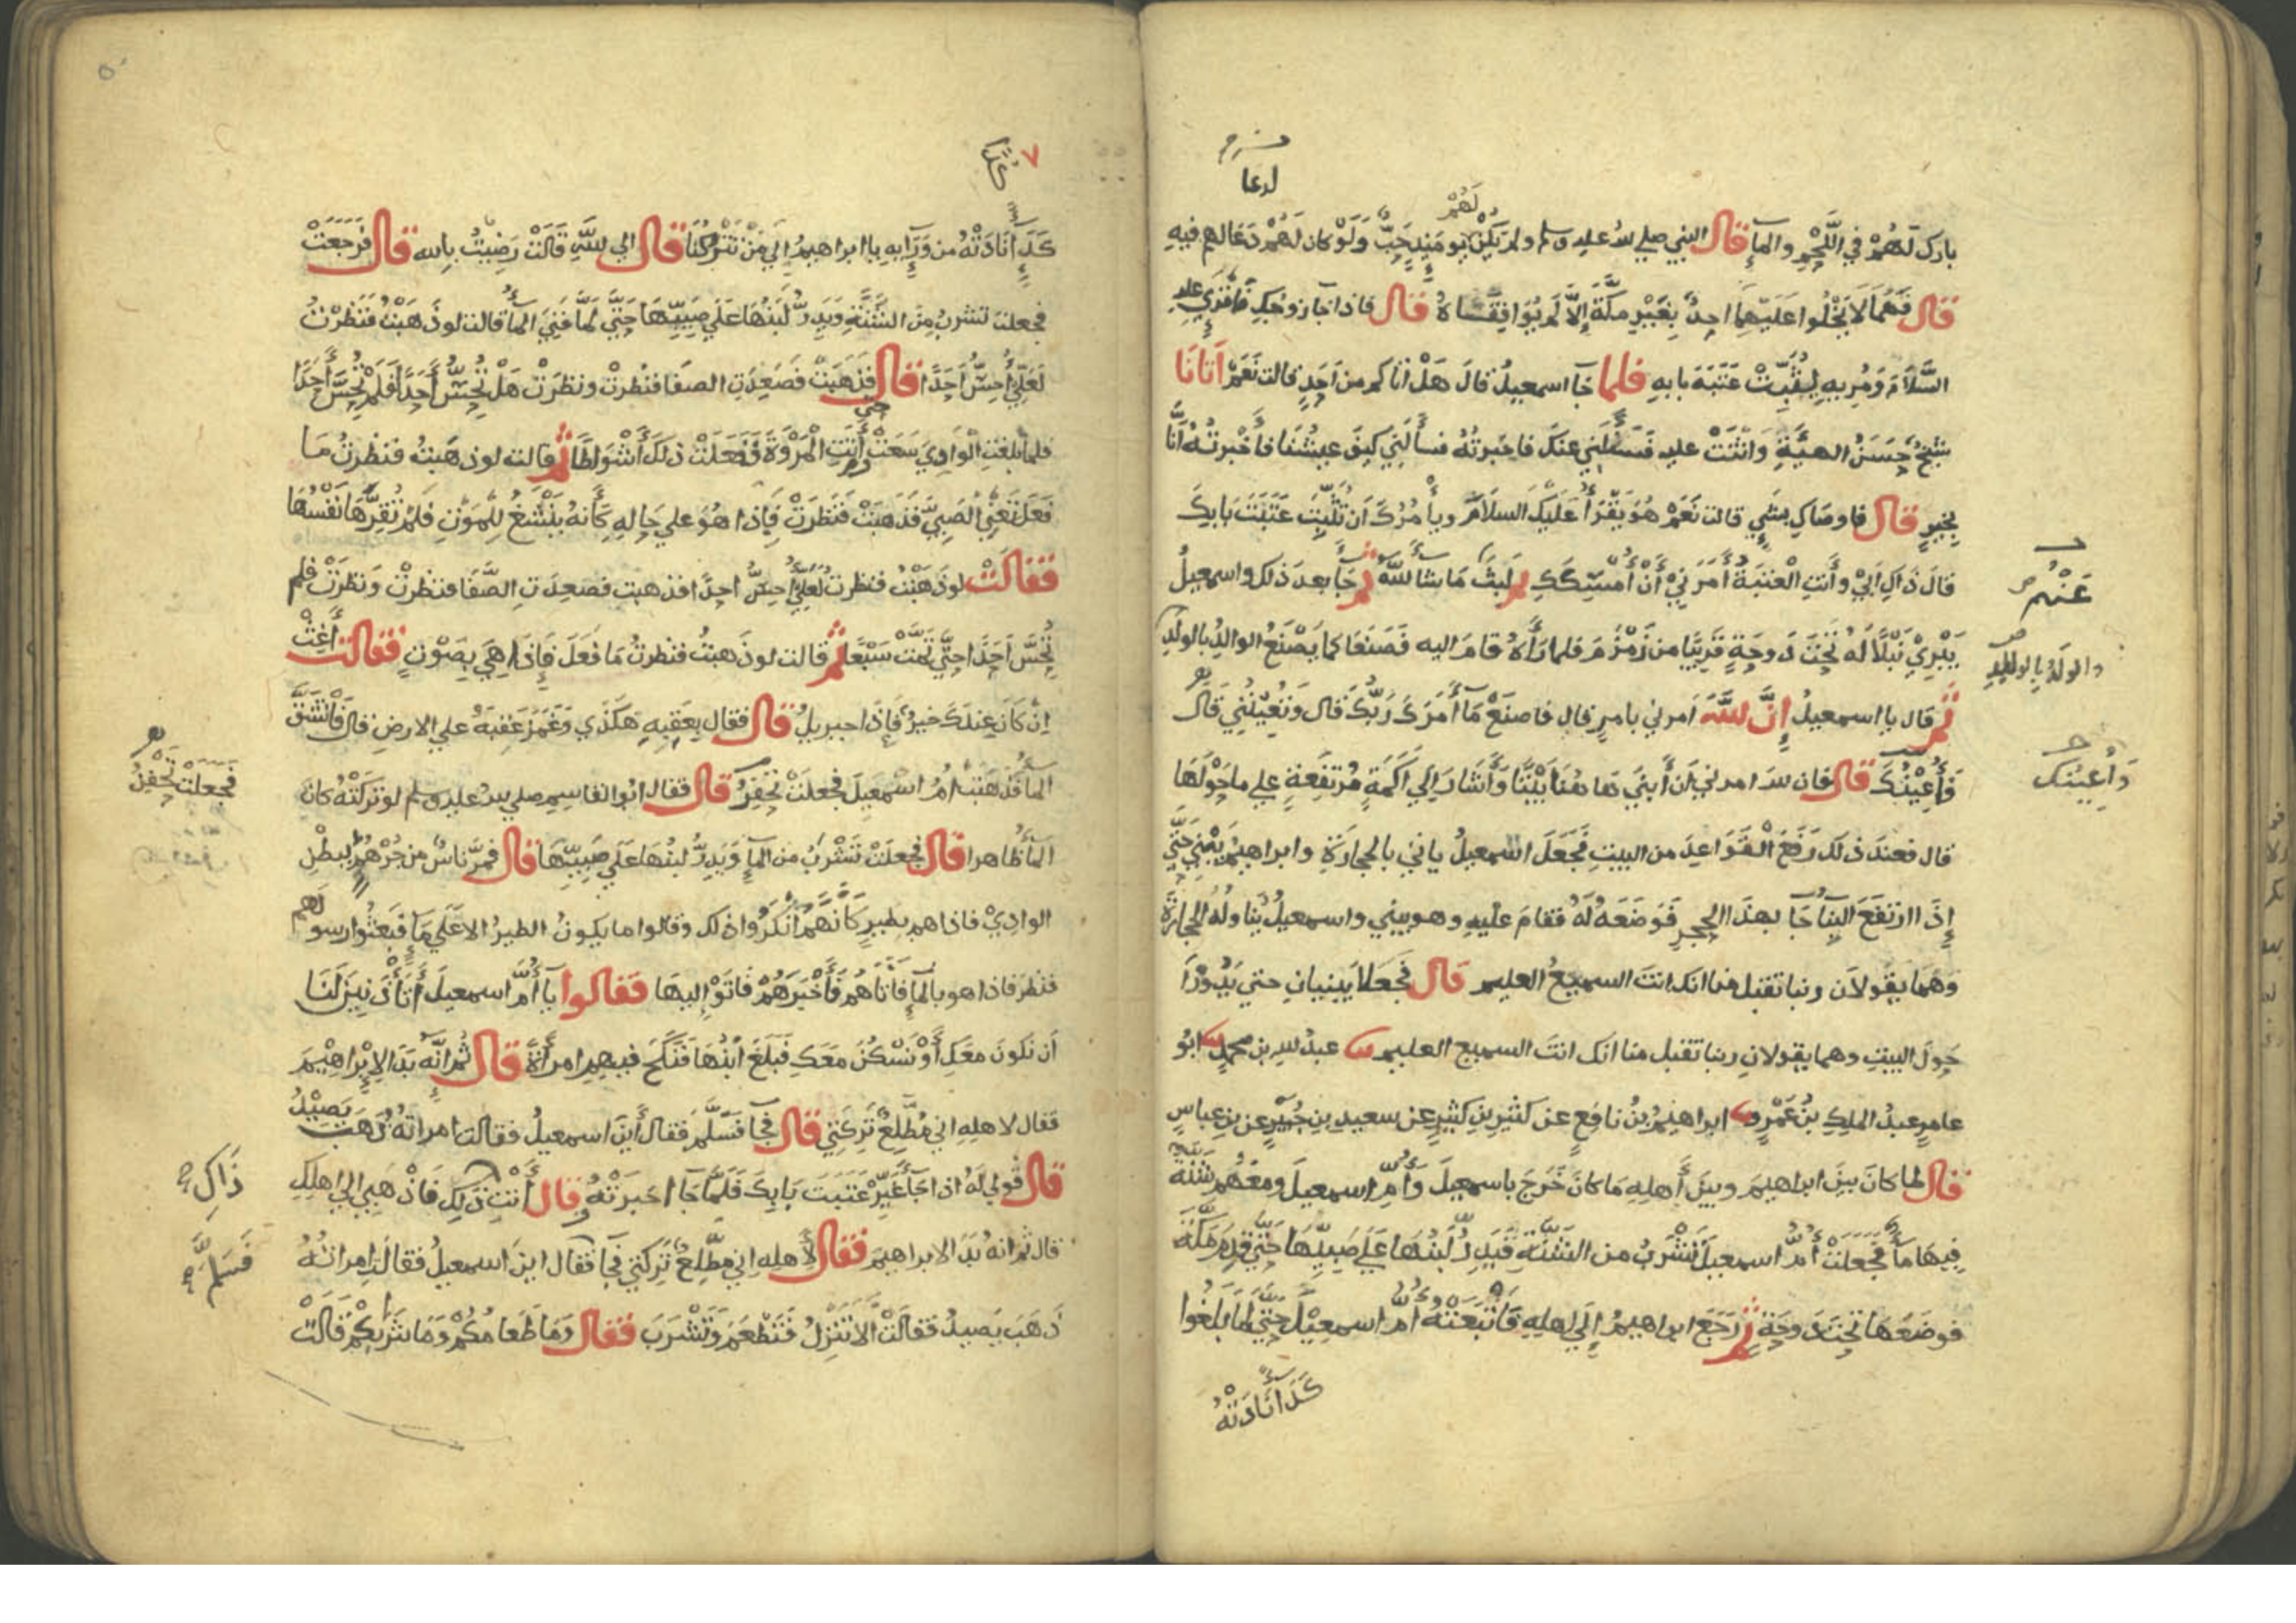 بارك لهم في اللحم والمآء قال النبي صلي الله عليه وسلم ولم يكن لهم يومئذ حب ولو كان لهم دعا لهم فيه
قال فهما لا يخلوا عليهما احد بغير مكة الا لم يوافقاه قال فاذا جآ زوجك فاقري عليه
السلام ومريه يثبت عتبة بابه فلما جآ اسمعيل قال هل اتاكم من احد قالت نعم اتانا
شيخ حسن الهيئة واثنت عليه فسألني عنك فاخبرته فسألني كيف عيشنا فأخبرته انا
بخير قال فاوصاك بشي قالت نعم هو يقرأ عليك السلام ويأمرك ان تثبت عتبت بابك
قال ذاك ابي وأنت العتبة أمرني أن أمسكك ثم لبث ما شا الله ثم جآ بعد ذلك واسمعيل
يبري نبلا له تحت دوحة قريبا من زمزم فلما رأاه قام اليه فصنعا كما يصنع الوالد بالولد
ثم قال يا اسمعيل إن الله امرني بامر قال فاصنع مآ أمرك ربك قال وتعينني قال
فأعينك قال فان الله امرني ان أبني هاهنا بيتا وأشار الي اكمة مرتفعة علي ما حولها
قال فعند ذلك رفع القواعد من البيت فجعل اسمعيل ياتي بالحجارة وابراهيم يبني حتي
إذا ارتفع البنآ جآ بهذا الحجر فوضعه له فقام عليه وهو يبني واسمعيل يناوله الحجارة
وهما يقولان ربنا تقبل منا انك انت السميع العليم قال فجعلا يبنيان حتي يدورا
حول البيت وهما يقولان ربنا تقبل منا انك انت السميع العليم عبد الله بن محمد ابو
عامر عبد الملك بن عمرو ابراهيم بن نافع عن كثير بن كثير عن سعيد بن جبير عن بن عباس
قال لما كان بين ابراهيم وبين أهله ما كان خرج باسمعيل وأم اسمعيل ومعهم شنة
فيها مآ فجعلت أم اسمعيل تشرب من الشنة فيدر لبنها علي صبيها حتي قدم مكة
فوضعها تحت دوحة ثم رجع ابراهيم إلي اهله فاتبعته أم اسمعيل حتي لما بلغوا
كدآ نادته
لدعا
عنهم
والولد بالوالد
وأعينك
كدآء نادته من ورآيه يا ابراهيم الي من تتركنا قال الي الله قالت رضيت بالله قال فرجعت
فجعلت تشرب من الشنة ويدر لبنها علي صبيها حتي لما فني المآ قالت لو ذهبت فنظرت
لعلي أحس أحدا قال فذهبت فصعدت الصفا فنظرت ونظرت هل تحس أحدا فلم تحس أحدا
فلما بلغت الوادي سعت حتي أتت المروة ففعلت ذلك أشواطا ثم قالت لو ذهبت فنظرت ما
فعل تعني الصبي فذهبت فنظرت فإذا هو علي حاله كأنه ينشغ للموت فلم تقرها نفسها
فقالت لو ذهبت فنظرت لعلي أحس احدا فذهبت فصعدت الصفا فنظرت ونظرت فلم
تحس احدا حتي تمت سبعا ثم قالت لو ذهبت فنظرت ما فعل فإذا هي بصوت فقالت أغث
إن كان عندك خير فإذا جبريل قال فقال بعقبه هكذي وغمز عقبه علي الارض قال فانشق
المآ فذهبت أم اسمعيل فجعلت تحفر قال فقال ابوا القاسم صلي الله عليه وسلم لو تركته كان
المآ ظاهرا قال فجعلت تشرب من المآ ويدر لبنها علي صبيها قال فمر ناس من جرهم ببطن
الوادي فاذا هم بطير كأنهم أنكروا ذلك وقالوا ما يكون الطير الا علي مآ فبعثوا رسولهم
فنظر فاذا هو بالمآ فاتاهم فأخبرهم فاتوا اليها فقالوا يآ أم اسمعيل أتأذنين لنا
أن نكون معك أو نسكن معك فبلغ ابنها فنكح فيهم امرأة قال ثم انه بدا لإبراهيم
فقال لاهله اني مطلع تركتي قال فجآ فسلم فقال أين اسمعيل فقالت امراته ذهب يصيد
قال قولي له اذا جآ غير عتبت بابك فلما جآ اخبرته قال أنت ذلك فاذهبي الي اهلك
قال ثم انه بدا لابراهيم فقال لأهله اني مطلع تركتي فجآ فقال اين اسمعيل فقالت امراته
ذهب يصيد فقالت ألا تنزل فتطعم وتشرب فقال وما طعامكم وما شرابكم قالت
فجعلت تحفن
ذاك
فسلم